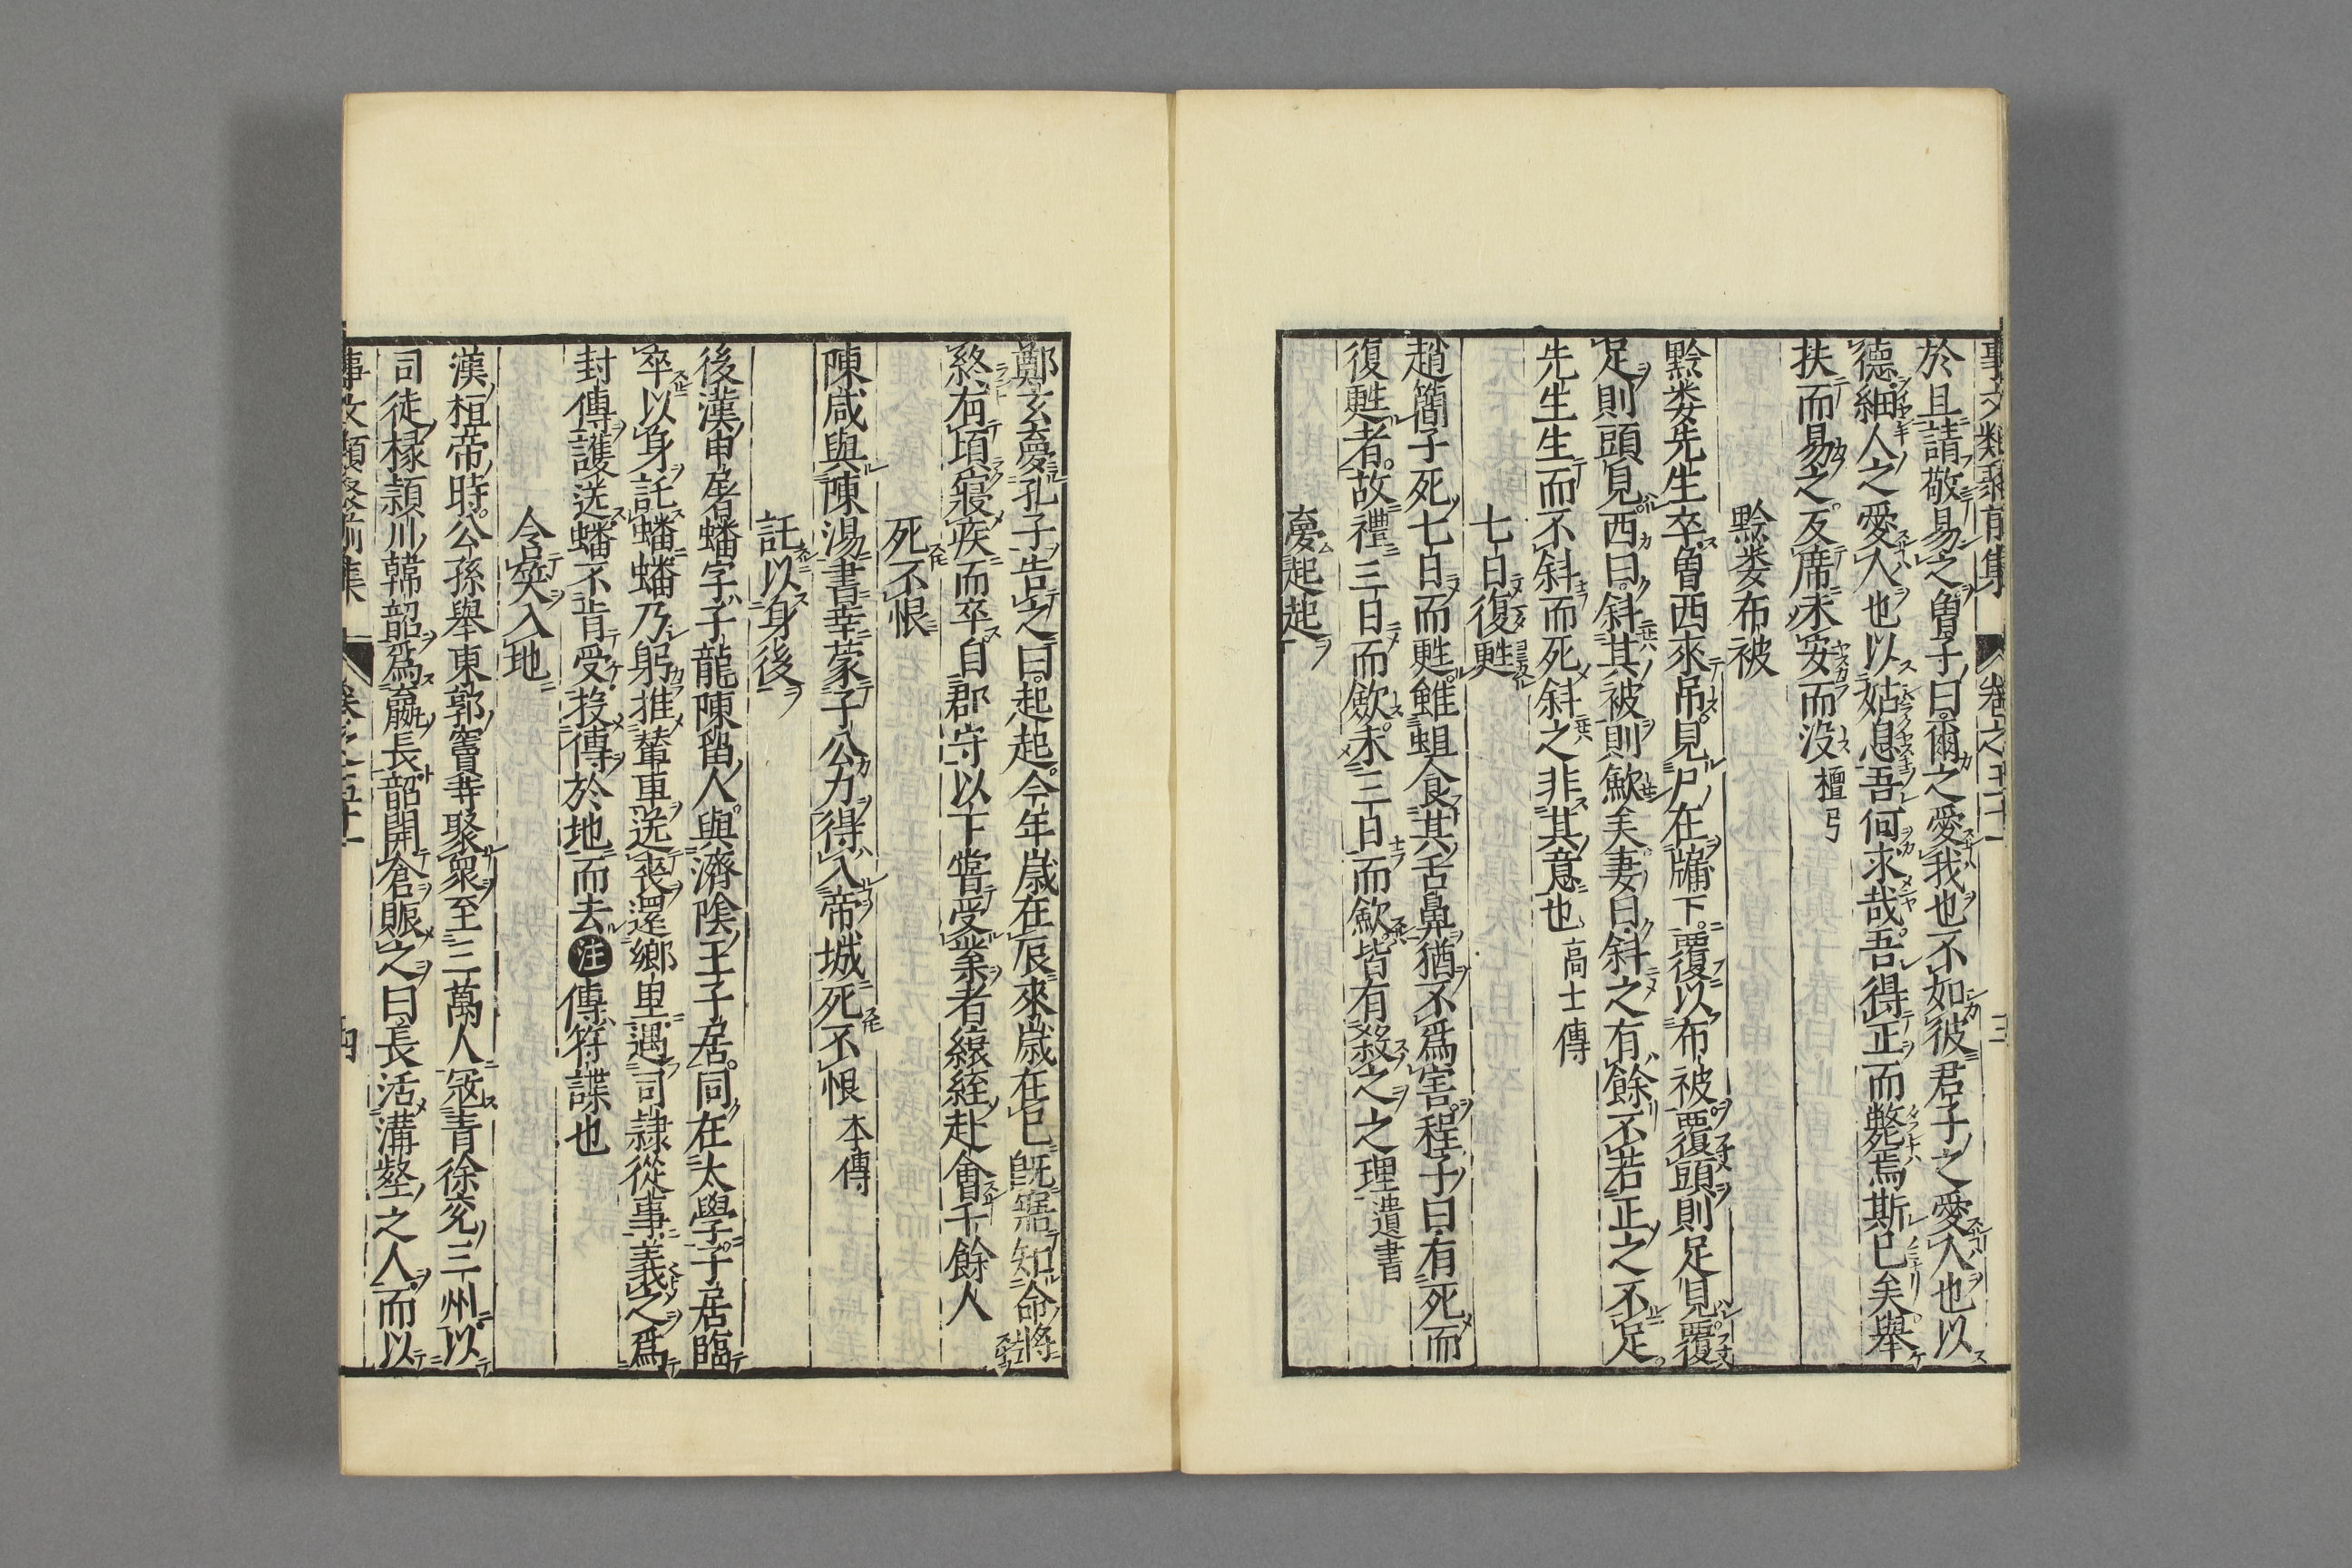 事文類聚前集　卷之五十一　三
於且請敬易之曾子曰爾之愛我也不如彼君子之愛人也以
德細人之愛人也以姑息吾何求哉吾得正而斃焉斯已矣舉
扶而易之反席未安而没 檀弓
黔婁布被
黔婁先生卒曾西來吊見尸在牖下覆以布被覆頭則足見覆
足則頭見西曰斜其被則歛矣妻曰斜之有餘不若正之不足
先生生而不斜而死斜之非其意也 高士傳
七日復甦
趙簡子死七日而甦雖蛆食其舌鼻猶不爲害程子曰有死而
復甦者故禮三日而歛未三日而歛皆有殺之之理 遺書
夢起起
鄭玄夢孔子告之曰起起今年歳在辰來歳在巳既寤知命將
終有項寢疾而卒自郡守以下嘗受業者縗絰赴會千餘人
死不恨
陳咸與陳湯書幸蒙子公力得入帝城死不恨 本傳
託以身後
後漢申屠蟠字子龍陳留人與濟陰王子居同在太學子居臨
卒以身託蟠蟠乃躬推輦車送喪還鄉里遇司隷從事義之爲
封傳護送蟠不肯受投傳於地而去 注 傳符諜也
含笑入地
漢桓帝時公孫舉東郭竇等聚衆至三萬人冦青徐兖三州以
司徒掾頴川韓韶爲嬴長韶開倉賑之曰長活溝壑之人而以
事文類聚前集　卷之五十一　四